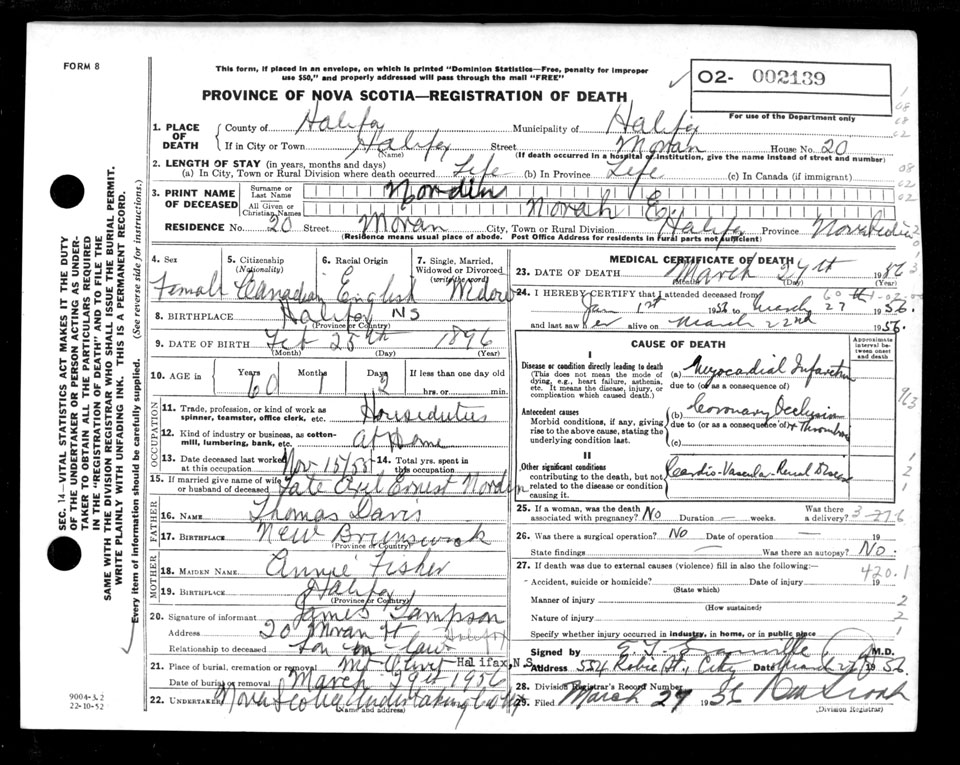 FORM 8
This form, if placed in an envelope, on which is printed "Dominion Statistics—Free, penalty for improper
use $50," and properly addressed will pass through the mail "FREE"
PROVINCE OF NOVA SCOTIA—REGISTRATION OF DEATH
O2- 002139
For use of the Department only
1. PLACE OF DEATH { County of Halifax Municipality of Halifax
If in City or Town Halifax Street Moran House No. 20
(Name) (If death occurred in a hospital or institution, give name instead of street and number)
2. LENGTH OF STAY (in years, months and days)
(a) In City, Town or Rural Division where death occurred Life (b) In Province Life (c) In Canada (if immigrant)
3. PRINT NAME OF DECEASED { Surname or Last Name Norden
All Given or Christian Names Norah E.
RESIDENCE No. 20 Street Moran City, Town or Rural Division Halifax Province Nova Scotia
(Residence means usual place of abode. Post Office Address for residents in rural parts not sufficient)
4. Sex 5. Citizenship (Nationality) 6. Racial Origin 7. Single, Married, Widowed or Divorced (write the word)
Female Canadian English Widow
8. BIRTHPLACE Halifax NS
(Province or Country)
9. DATE OF BIRTH Feb 25th 1896
(Month) (Day) (Year)
10. AGE in { Years Months Days If less than one day old
60 1 2 hrs. or min.
OCCUPATION
11. Trade, profession, or kind of work as spinner, teamster, office clerk, etc. Houseduties
12. Kind of industry or business, as cotton-mill, lumbering, bank, etc. At Home
13. Date deceased last worked at this occupation Nov 15/55 14. Total yrs. spent in this occupation
15. If married give name of wife or husband of deceased Late Ernest Norden
FATHER
16. NAME Thomas Davis
17. BIRTHPLACE New Brunswick
(Province or Country)
MOTHER
18. MAIDEN NAME Annie Fisher
19. BIRTHPLACE Halifax
(Province or Country)
20. Signature of informant James Sampson
Address 20 Moran St Halifax
Relationship to deceased Son in law
21. Place of burial, cremation or removal Mt Olivet Halifax, N.S.
Date of burial or removal March 29th 1956
22. UNDERTAKER Nova Scotia Undertaking Co Hfx
(Name and address)
MEDICAL CERTIFICATE OF DEATH
23. DATE OF DEATH March 27th 1956
(Month) (Day) (Year)
24. I HEREBY CERTIFY that I attended deceased from
Jan 1st 1956 to March 27 1956
and last saw her alive on March 22nd 1956.
CAUSE OF DEATH
Approximate interval between onset and death
I
Disease or condition directly leading to death (a) Myocadial Infarction
(This does not mean the mode of dying, e.g., heart failure, asthenia, etc. It means the disease, injury, or complication which caused death.)
due to (or as a consequence of)
Antecedent causes
Morbid conditions, if any, giving rise to the above cause, stating the underlying condition last.
(b) Coronary Occlusion
due to (or as a consequence of) + Thrombosis
(c)
II
Other significant conditions contributing to the death, but not related to the disease or condition causing it.
Cardio-Vascular-Renal Disease
25. If a woman, was the death associated with pregnancy? No Duration — weeks. Was there a delivery?
26. Was there a surgical operation? No Date of operation — 19
State findings — Was there an autopsy? No.
27. If death was due to external causes (violence) fill in also the following:
Accident, suicide or homicide? Date of injury 19
(State which)
420.1
Manner of injury
(How sustained)
Nature of injury
Specify whether injury occurred in industry, in home, or in public place
Signed by M.D.
Address 554 Robie St., City Date March 27 1956
28. Division Registrar's Record Number
29. Filed March 27 1956
(Division Registrar)
SEC. 14—VITAL STATISTICS ACT MAKES IT THE DUTY
OF THE UNDERTAKER OR PERSON ACTING AS UNDER-
TAKER TO OBTAIN ALL THE PARTICULARS REQUIRED
IN THE "REGISTRATION OF DEATH" AND TO FILE THE
SAME WITH THE DIVISION REGISTRAR WHO SHALL ISSUE THE BURIAL PERMIT.
WRITE PLAINLY WITH UNFADING INK. THIS IS A PERMANENT RECORD.
Every item of information should be carefully supplied. (See reverse side for instructions.)
9004-3.2
22-10-52